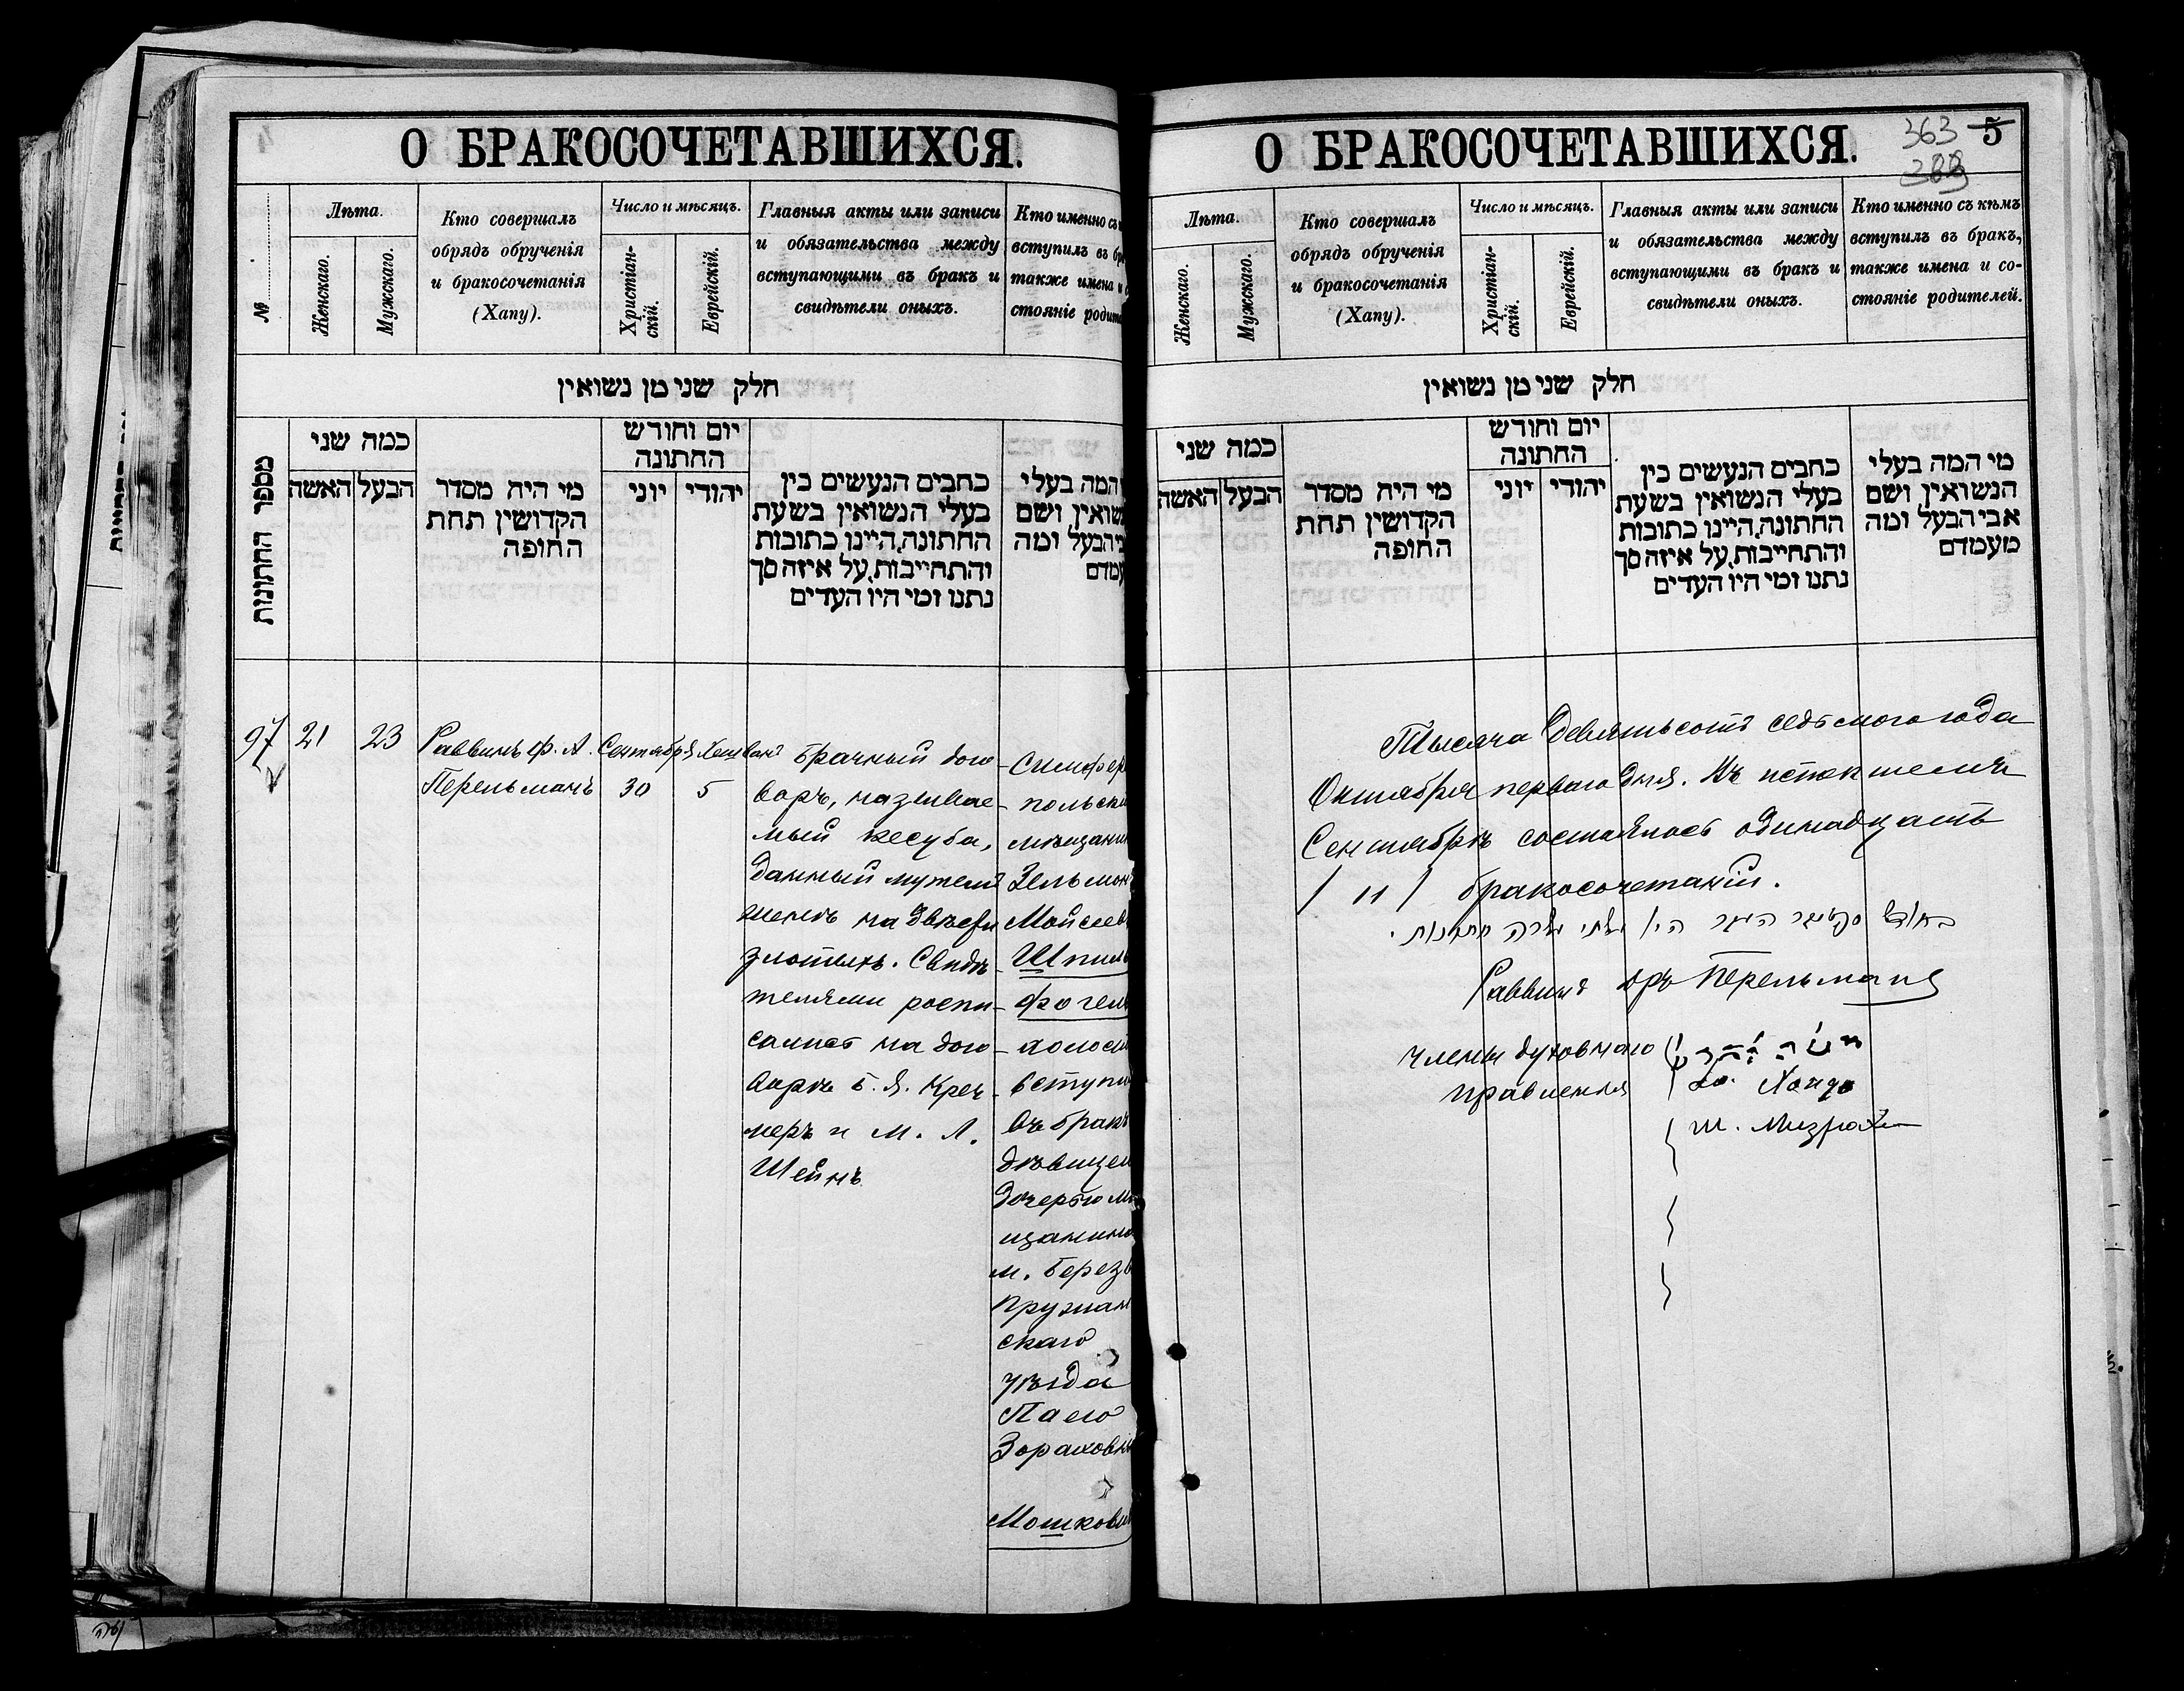 О БРАКОСОЧЕТАВШИХСЯ.
№
Лѣта.
Женскаго.
Мужскаго.
Кто совершалъ
обрядъ обрученія
и бракосочетанія
(Хапу).
Число и мѣсяцъ.
Христіан-
скій.
Еврейскій.
Главныя акты или записи
и обязательства между
вступающими въ бракъ и
свидѣтели оныхъ.
Кто именно съ
вступилъ въ бр
также имена и
стояніе родит
חלק שני מן נשואין
מספר החתונות
כמה שני
האשה
הבעל
מי היה מסדר
הקדושין תחת
החופה
יום וחודש
החתונה
יוני
יהודי
כתבים הנעשים בין
בעלי הנשואין בשעת
החתונה, היינו כתובות
והתחייבות, על איזה סך
נתנו ומי היו העדים
המה בעלי
שואין ושם
הבעל ומה
עמדם
97
21
23
Раввинъ Ф. А.
Перельманъ
Сентябрь
30
Хешванъ
5
Брачный дого-
воръ, называе-
мый кесуба,
данный мужемъ
женѣ на двѣсти
злотыхъ. Свидѣ-
телями роспи-
сались на дого-
ворѣ Б. Я. Креч-
меръ и М. Л.
Шейнъ
Симфер
польскі
мѣщанин
Зельман
Мойсеев
Шпиль
фогель
холост
вступи
въ бракъ
дѣвицей
дочерью мѣ
щанина
м. Берез
Пружан
скаго
уѣзда
Пасю
Зораховн
Мошкови
О БРАКОСОЧЕТАВШИХСЯ.
363
5
Лѣта.
Женскаго.
Мужскаго.
Кто совершалъ
обрядъ обрученія
и бракосочетанія
(Хапу).
Число и мѣсяцъ.
Христіан-
скій.
Еврейскій.
Главныя акты или записи
и обязательства между
вступающими въ бракъ и
свидѣтели оныхъ.
Кто именно съ кѣмъ
вступилъ въ бракъ,
также имена и со-
стояніе родителей.
חלק שני מן נשואין
כמה שני
האשה
הבעל
מי היה מסדר
הקדושין תחת
החופה
יום וחודש
החתונה
יוני
יהודי
כתבים הנעשים בין
בעלי הנשואין בשעת
החתונה, היינו כתובות
והתחייבות, על איזה סך
נתנו ומי היו העדים
מי המה בעלי
הנשואין ושם
אבי הבעל ומה
מעמדם
Тысяча девятьсотъ седьмого года
Октября перваго дня. Въ истекшемъ
Сентябрѣ состоялось одинадцать
/ 11 / бракосочетаній.
בחודש סקטיבר העבר היו עשתי עשרה חתונות.
Раввинъ Перельманъ
Члены духовнаго
правленія
Ш. Мизрахи